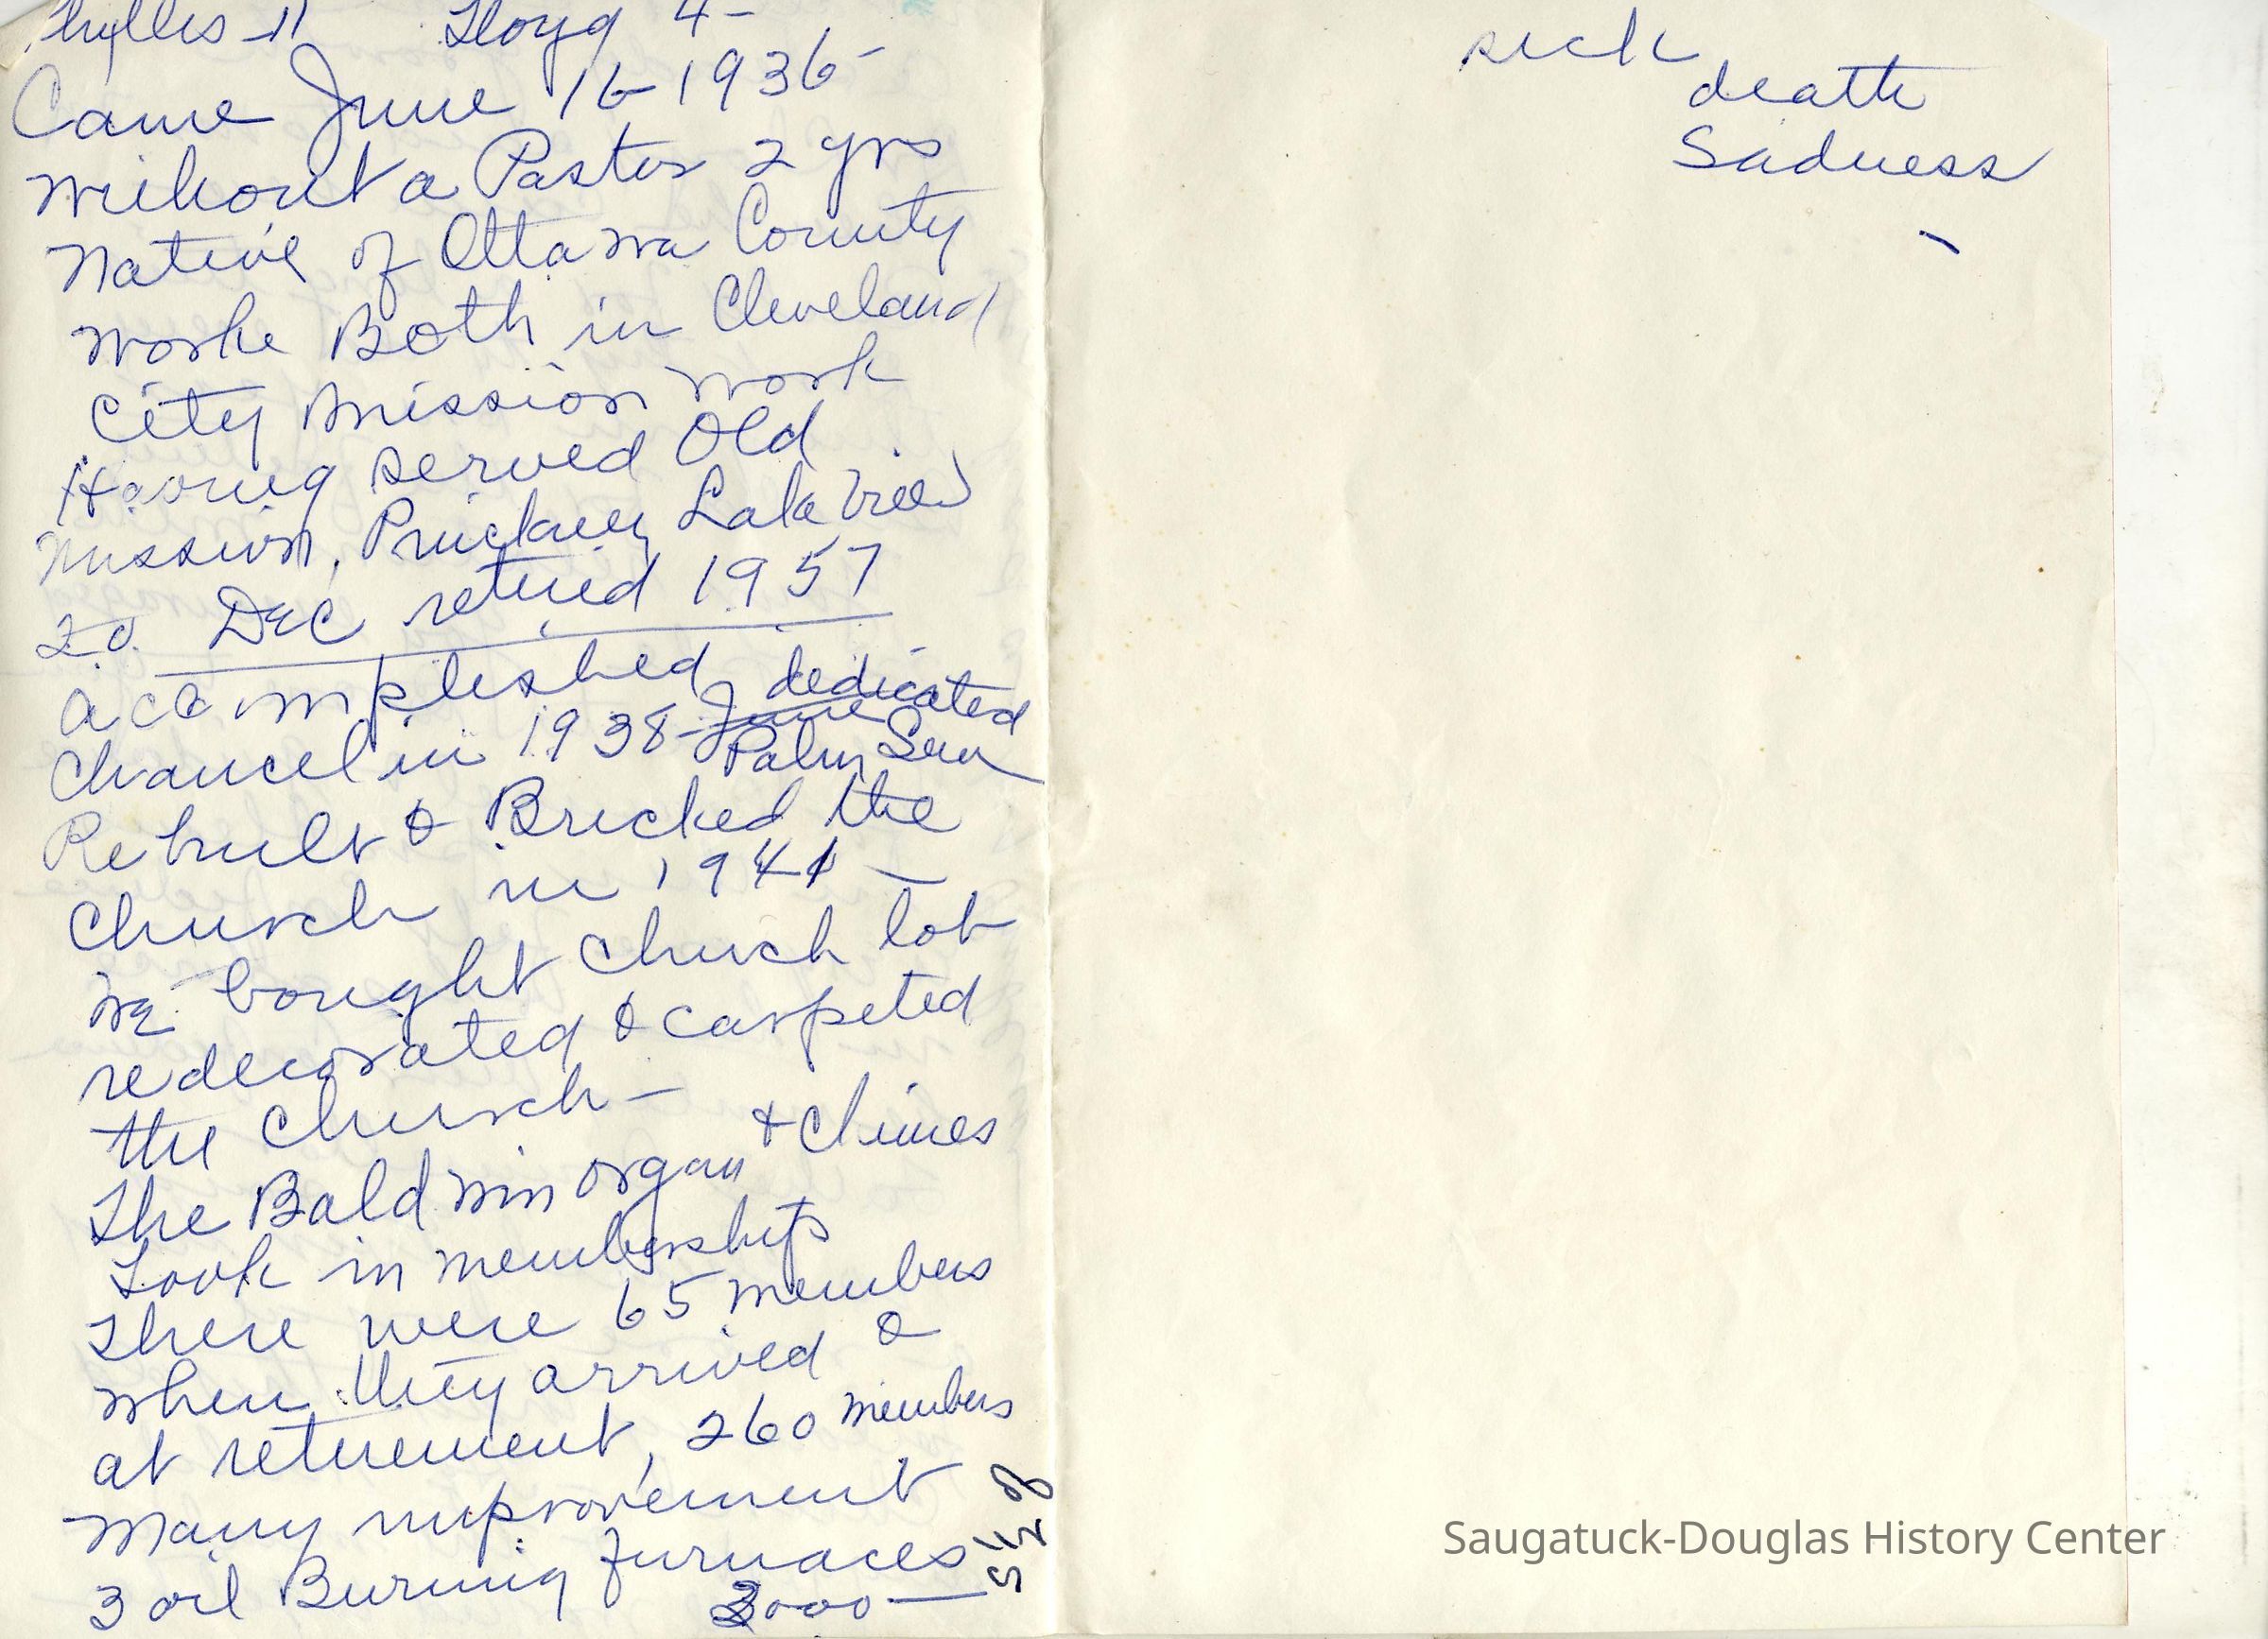 Phyllis 11 Lloyd 4-
Came June 16-1936-
without a Pastor 2 yrs
Native of Ottawa County
worke Both in Cleveland
City Mission work
Having served Old
Mission, Pinckney Lake View
20. Dec retired 1957
accomplished
Chancel in 1938- June dedicated
Palm Sun
Rebuilt & Bricked the
Church in 1941 —
we bought church lot
redecorated & carpeted
the Church —
The Baldwin organ & Chimes
Look in memberships
There were 65 members
when they arrived &
at retirement, 260 members
Many improvement
3 oil Burning furnaces
3000 —
sick
death
Sadness
Saugatuck-Douglas History Center